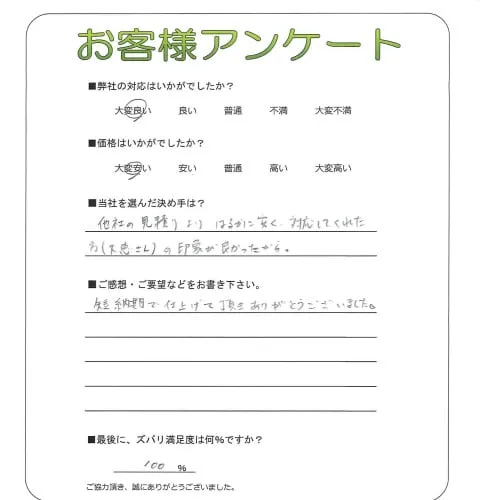 お客様アンケート
■弊社の対応はいかがでしたか?
大変良い 良い 普通 不満 大変不満
■価格はいかがでしたか?
大変安い 安い 普通 高い 大変高い
■当社を選んだ決め手は?
他社の見積りより はるかに安く、対応してくれた
方(さん)の印象が良かったから。
■ご感想・ご要望などをお書き下さい。
短納期で仕上げて頂きありがとうございました。
■最後に、ズバリ満足度は何%ですか?
100 %
ご協力頂き、誠にありがとうございました。